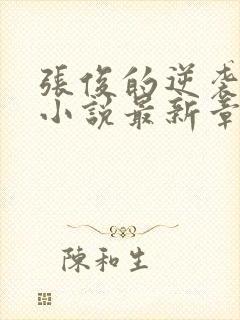 張俊的逆袭
小說最新章
陳和生